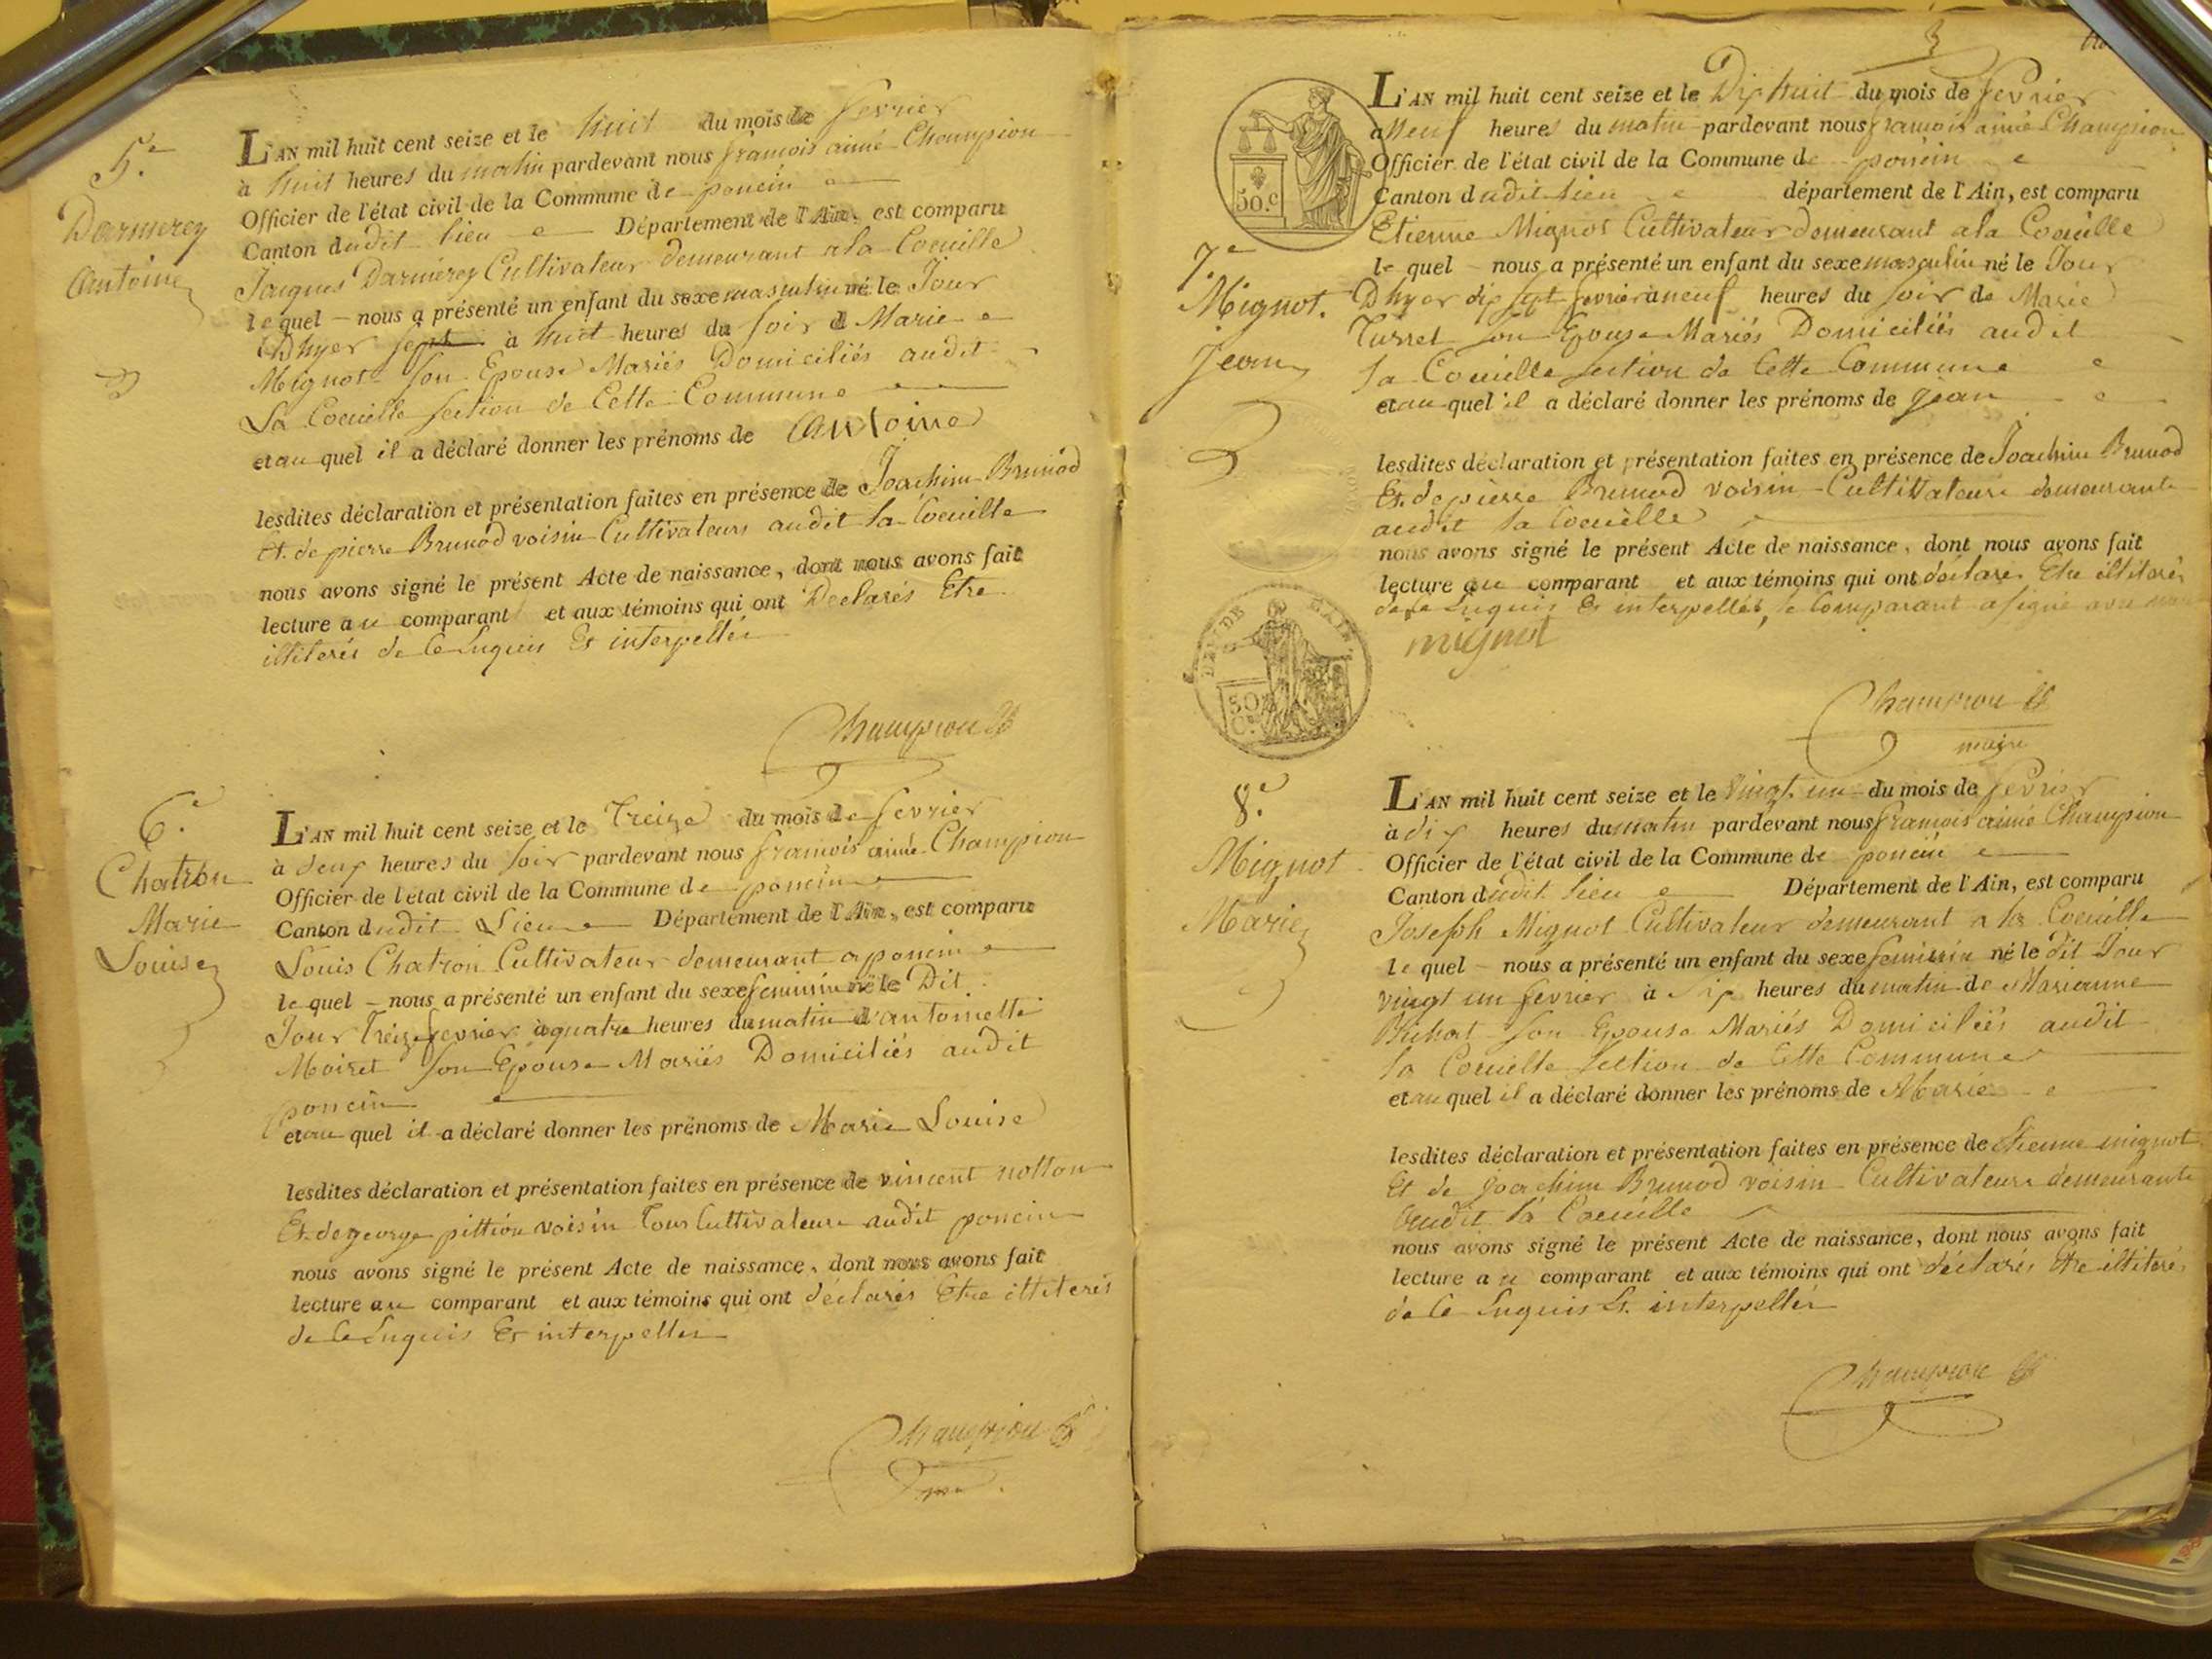 5.e
Darmerey
Antoine
L'AN mil huit cent seize et le huit du mois de fevrier
à huit heures du matin pardevant nous françois aimé Champion
Officier de l'état civil de la Commune de poncin
Canton dudit lieu Département de l'Ain, est comparu
Jaques Darmerey Cultivateur demeurant a la Coeuille
le quel nous a présenté un enfant du sexe masculin né le Jour
Dhyer sept à huit heures du soir d Marie
Mignot son Epouse Mariés Domiciliés audit
La Coeuille section de Cette Commune
et au quel il a déclaré donner les prénoms de Antoine
lesdites déclaration et présentation faites en présence de Joachim Brunod
Et de pierre Brunod voisin Cultivateurs audit La Coeuille
nous avons signé le présent Acte de naissance, dont nous avons fait
lecture au comparant et aux témoins qui ont Declarés Etre
illiterés de Ce Enquis Et interpellés
Champion
6.e
Chatron
Marie
Louise
L'AN mil huit cent seize et le Treize du mois de fevrier
à deux heures du soir pardevant nous françois aimé Champion
Officier de l'état civil de la Commune de poncin
Canton dudit Lieu Département de l'Ain, est comparu
Louis Chatron Cultivateur demeurant a poncin
le quel nous a présenté un enfant du sexe feminin né le Dit
Jour Treize fevrier à quatre heures du matin d'antoinette
Moiret son Epouse Mariés Domiciliés audit
poncin
et au quel il a déclaré donner les prénoms de Marie Louise
lesdites déclaration et présentation faites en présence de vincent notton
Et de george pittion voisin Tous Cultivateurs audit poncin
nous avons signé le présent Acte de naissance, dont nous avons fait
lecture au comparant et aux témoins qui ont déclarés Etre illiterés
de Ce Enquis Et interpellés
Champion
3
50.c
7.e
Mignot.
Jean
L'AN mil huit cent seize et le Dix huit du mois de fevrier
a Neuf heures du matin pardevant nous françois aimé Champion
Officier de l'état civil de la Commune de poncin
Canton dudit lieu département de l'Ain, est comparu
Etienne Mignot Cultivateur demeurant a la Coeuille
le quel nous a présenté un enfant du sexe masculin né le Jour
Dhyer dix sept fevrier a neuf heures du soir de Marie
Turret son Epouse Mariés Domiciliés audit
La Coeuille section de Cette Commune
et au quel il a déclaré donner les prénoms de jean
lesdites déclaration et présentation faites en présence de Joachim Brunod
Et de pierre Brunod voisin Cultivateurs demeurants
audit la Coeuille
nous avons signé le présent Acte de naissance, dont nous avons fait
lecture au comparant et aux témoins qui ont déclarés Etre illiterés
de Ce Enquis Et interpellés, le Comparant a signé avec nous
mignot
50 C.
Champion
maire
8.e
Mignot
Marie
L'AN mil huit cent seize et le vingt un du mois de fevrier
à dix heures du matin pardevant nous françois aimé Champion
Officier de l'état civil de la Commune de poncin
Canton dudit lieu Département de l'Ain, est comparu
Joseph Mignot Cultivateur demeurant a la Coeuille
le quel nous a présenté un enfant du sexe feminin né le dit Jour
vingt un fevrier à six heures du matin de Marianne
Bichat son Epouse Mariés Domiciliés audit
La Coeuille section de Cette Commune
et au quel il a déclaré donner les prénoms de Marie
lesdites déclaration et présentation faites en présence de Etienne mignot
Et de joachim Brunod voisin Cultivateurs demeurants
audit la Coeuille
nous avons signé le présent Acte de naissance, dont nous avons fait
lecture au comparant et aux témoins qui ont déclarés Etre illiterés
de Ce Enquis Et interpellés
Champion